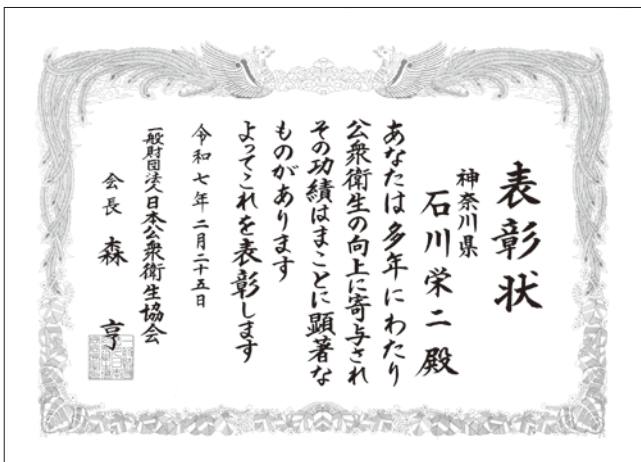 表彰状
神奈川県
石川栄二殿
あなたは多年にわたり
公衆衛生の向上に寄与され
その功績はまことに顕著な
ものがあります
よってこれを表彰します
令和七年二月二十五日
一般財団法人日本公衆衛生協会
会長 森 亨